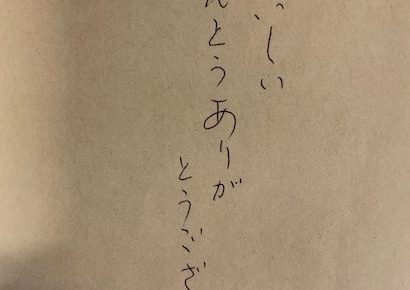 しい
とうありが
とうござ